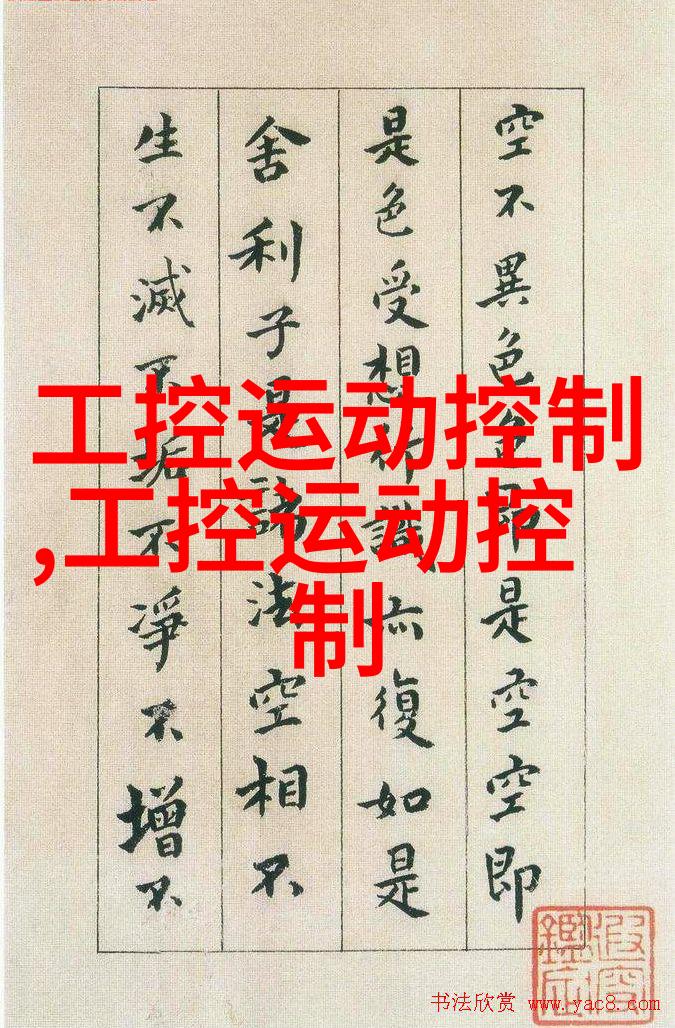 空不異色色即是空空即
是色受想行識亦復如是
舍利子是諸法空相不
生不滅不垢不淨不增不
工控运动控制
,工控运动控
制
书法欣赏 www.yac8.com